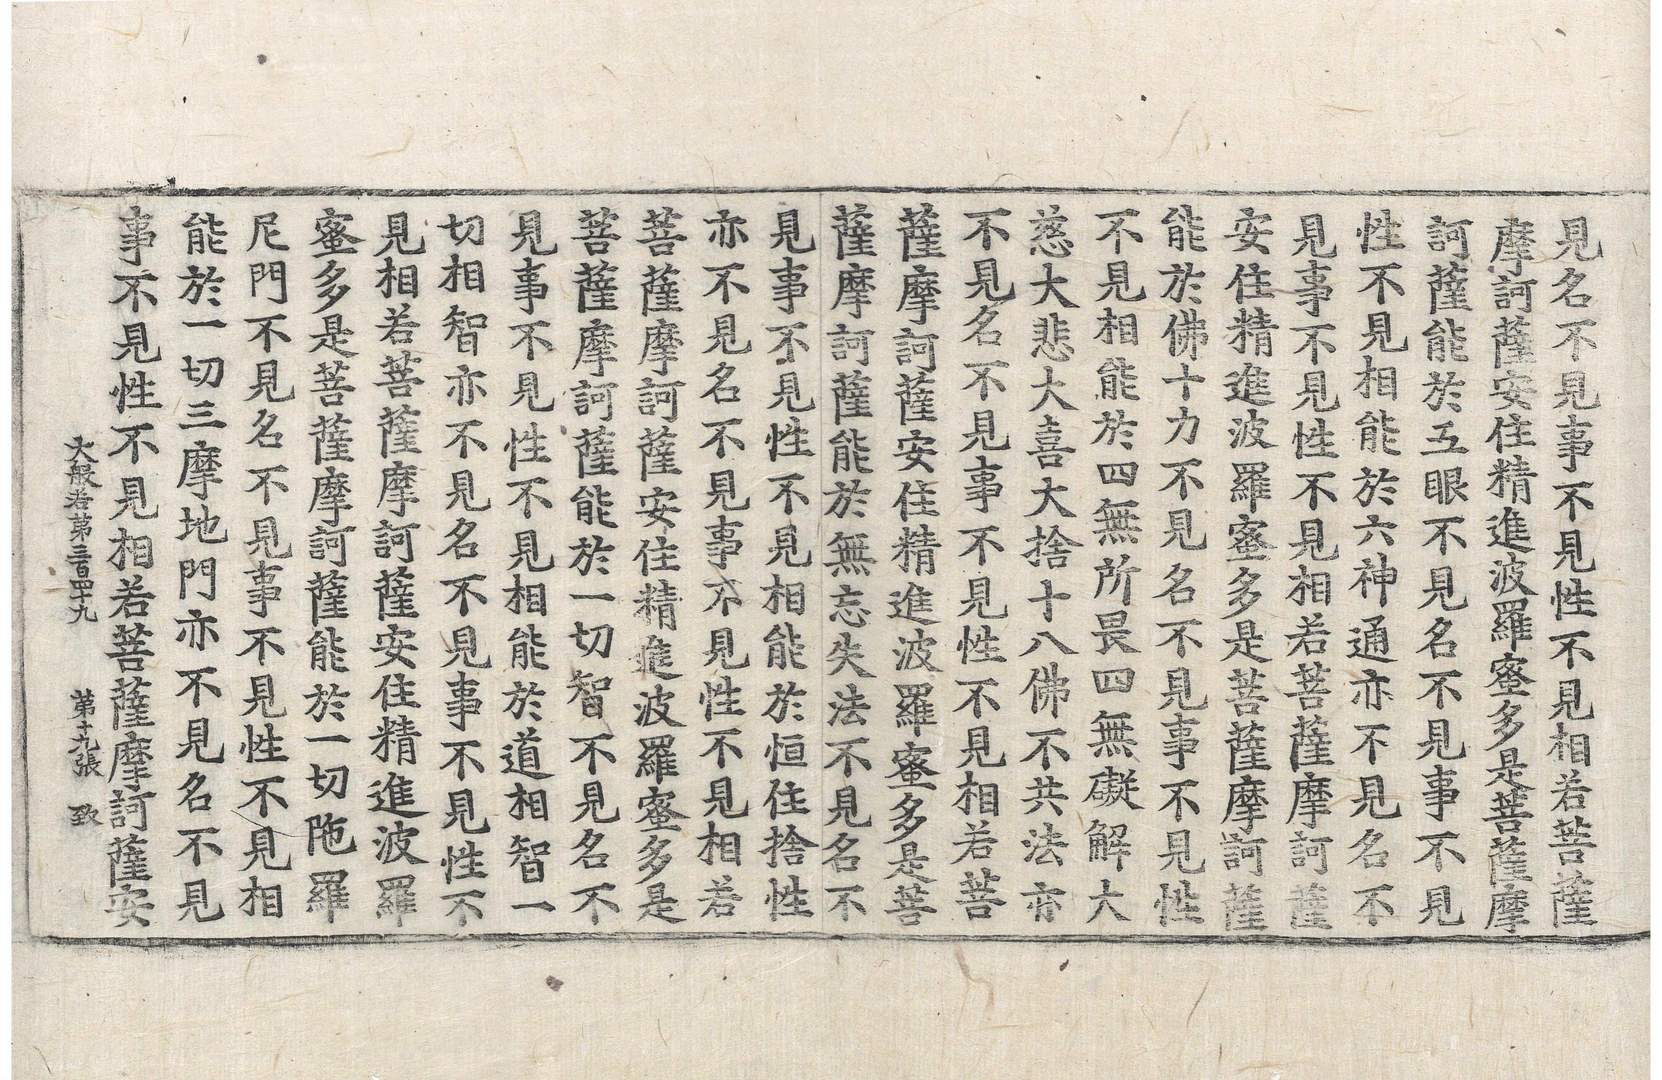 見名不見事不見性不見相若菩薩
摩訶薩安住精進波羅蜜多是菩薩摩
訶薩能於五眼不見名不見事不見
性不見相能於六神通亦不見名不
見事不見性不見相若菩薩摩訶薩
安住精進波羅蜜多是菩薩摩訶薩
能於佛十力不見名不見事不見性
不見相能於四無所畏四無礙解大
慈大悲大喜大捨十八佛不共法亦
不見名不見事不見性不見相若菩
薩摩訶薩安住精進波羅蜜多是菩
薩摩訶薩能於無忘失法不見名不
見事不見性不見相能於恒住捨性
亦不見名不見事不見性不見相若
菩薩摩訶薩安住精進波羅蜜多是
菩薩摩訶薩能於一切智不見名不
見事不見性不見相能於道相智一
切相智亦不見名不見事不見性不
見相若菩薩摩訶薩安住精進波羅
蜜多是菩薩摩訶薩能於一切陁羅
尼門不見名不見事不見性不見相
能於一切三摩地門亦不見名不見
事不見性不見相若菩薩摩訶薩安
大般若第三百四十九 第十九張 致